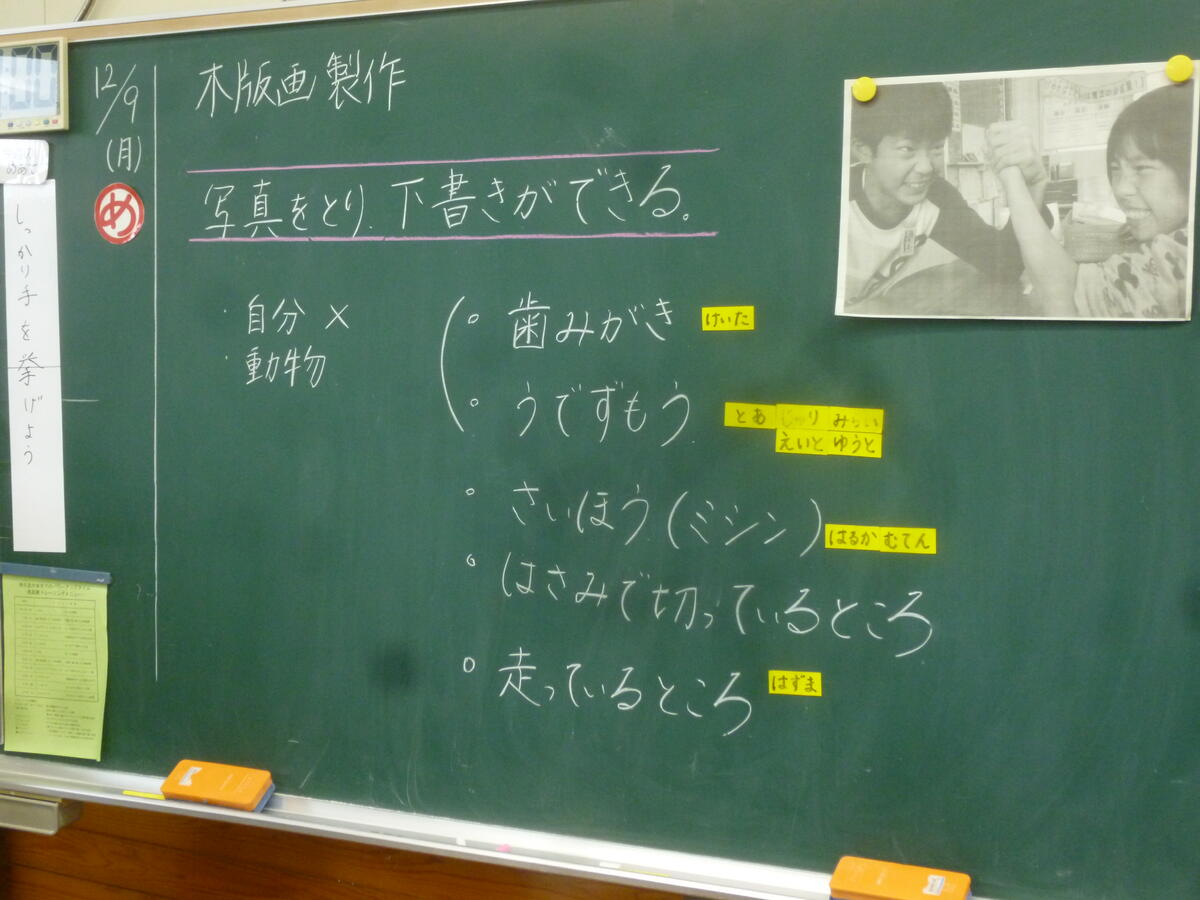 12/9
(月)
め
木版画製作
写真をとり、下書きができる。
・自分 ×
・動物
。歯みがき けいた
。うでずもう とあ じゅり みらい
えいと ゆうと
。さいほう(ミシン) はるか むてん
。はさみで切っているところ
。走っているところ はずま
しっかり手を挙げよう